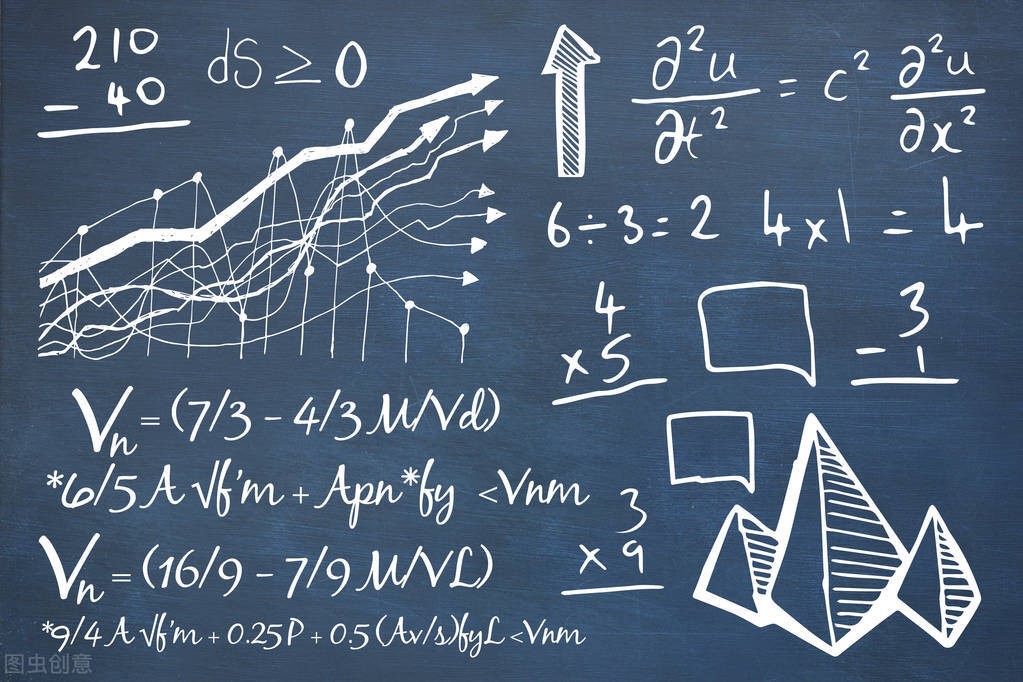 210
- 40
dS ≥ 0
∂²u/∂t² = c² ∂²u/∂x²
6÷3=2
4x1 = 4
4
x5
3
- 1
Vn = (7/3 - 4/3 M/Vd)
*6/5 A √f'm + Apn*fy <Vnm
3
x 9
Vn = (16/9 - 7/9 M/VL)
*9/4 A √f'm + 0.25P + 0.5 (Av/s)fyL <Vnm
图虫创意